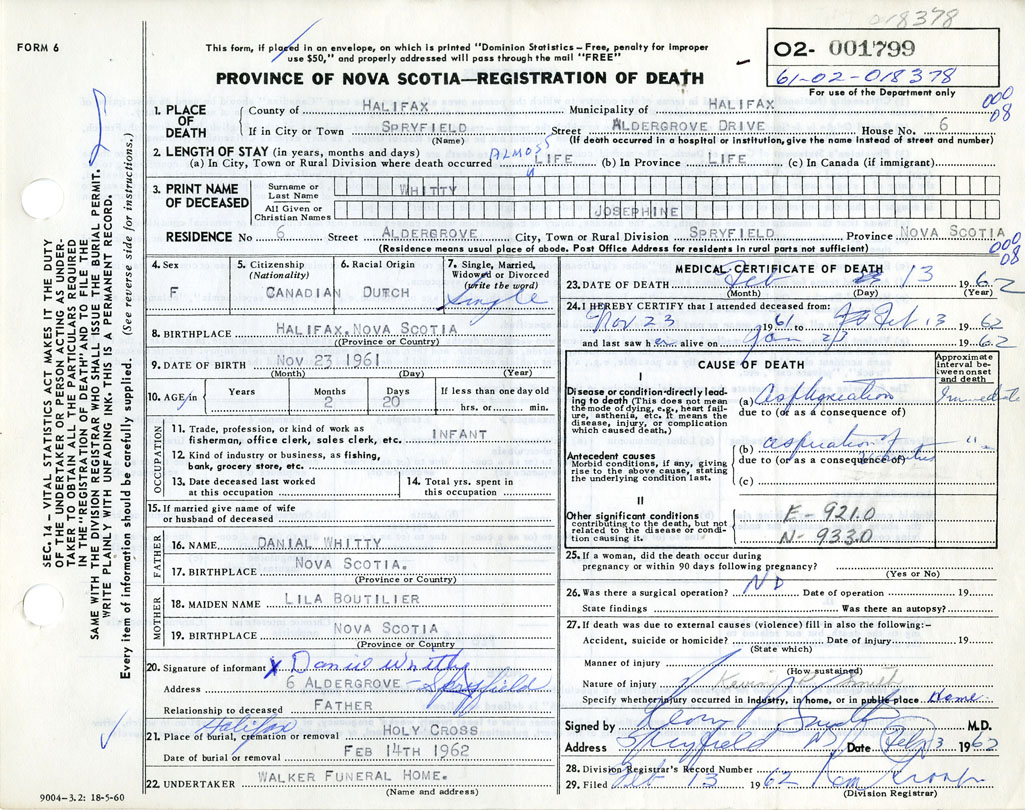 018378
FORM 6
This form, if placed in an envelope, on which is printed "Dominion Statistics—Free, penalty for improper
use $50," and properly addressed will pass through the mail "FREE"
O2- 001799
61-02-018378
For use of the Department only
PROVINCE OF NOVA SCOTIA—REGISTRATION OF DEATH
000
08
1. PLACE OF DEATH
County of HALIFAX Municipality of HALIFAX
If in City or Town SPRYFIELD Street ALDERGROVE DRIVE House No. 6
(Name) (If death occurred in a hospital or institution, give the name instead of street and number)
2. LENGTH OF STAY (in years, months and days)
(a) In City, Town or Rural Division where death occurred ALMOST LIFE (b) In Province LIFE (c) In Canada (if immigrant)
3. PRINT NAME OF DECEASED
Surname or Last Name WHITTY
All Given or Christian Names JOSEPHINE
RESIDENCE No 6 Street ALDERGROVE City, Town or Rural Division SPRYFIELD Province NOVA SCOTIA
(Residence means usual place of abode. Post Office Address for residents in rural parts not sufficient)
000
08
4. Sex
F
5. Citizenship
(Nationality)
CANADIAN
6. Racial Origin
DUTCH
7. Single, Married,
Widowed or Divorced
(write the word)
Single
8. BIRTHPLACE HALIFAX. NOVA SCOTIA
(Province or Country)
9. DATE OF BIRTH NOV 23 1961
(Month) (Day) (Year)
10. AGE in
Years Months Days If less than one day old
2 20 hrs. or min.
OCCUPATION
11. Trade, profession, or kind of work as
fisherman, office clerk, sales clerk, etc. INFANT
12. Kind of industry or business, as fishing,
bank, grocery store, etc.
13. Date deceased last worked
at this occupation
14. Total yrs. spent in
this occupation
15. If married give name of wife
or husband of deceased
FATHER
16. NAME DANIAL WHITTY
17. BIRTHPLACE NOVA SCOTIA.
(Province or Country)
MOTHER
18. MAIDEN NAME LILA BOUTILIER
19. BIRTHPLACE NOVA SCOTIA
(Province or Country)
20. Signature of informant X Daniel Whitty
Address 6 ALDERGROVE - Spryfield
Relationship to deceased FATHER
Halifax
21. Place of burial, cremation or removal HOLY CROSS
Date of burial or removal FEB 14TH 1962
22. UNDERTAKER WALKER FUNERAL HOME.
(Name and address)
MEDICAL CERTIFICATE OF DEATH
23. DATE OF DEATH Feb 13 1962
(Month) (Day) (Year)
24. I HEREBY CERTIFY that I attended deceased from:
Nov 23 1961 to Feb 13 1962
and last saw her alive on Jan 23 1962
CAUSE OF DEATH
Approximate
interval between onset
and death
I
Disease or condition directly leading to death (This does not mean
the mode of dying, e.g., heart failure, asthenia, etc. It means the
disease, injury, or complication
which caused death.)
(a) Asphyxiation Immediate
due to (or as a consequence of)
Antecedent causes
Morbid conditions, if any, giving
rise to the above cause, stating
the underlying condition last.
(b) aspiration of vomitus "
due to (or as a consequence of)
(c)
II
Other significant conditions
contributing to the death, but not
related to the disease or condition causing it.
E-921.0
N-933.0
25. If a woman, did the death occur during
pregnancy or within 90 days following pregnancy?
(Yes or No)
26. Was there a surgical operation? NO Date of operation 19
State findings Was there an autopsy?
27. If death was due to external causes (violence) fill in also the following:-
Accident, suicide or homicide? Date of injury 19
(State which)
Manner of injury
(How sustained)
Nature of injury Kevin P. Smith
Specify whether injury occurred in industry, in home, or in public place Home
Signed by M.D.
Address Spryfield NS Date Feb 13 1962
28. Division Registrar's Record Number
29. Filed Feb 13 1962
(Division Registrar)
SEC. 14 - VITAL STATISTICS ACT MAKES IT THE DUTY
OF THE UNDERTAKER OR PERSON ACTING AS UNDERTAKER TO OBTAIN ALL THE PARTICULARS REQUIRED
IN THE "REGISTRATION OF DEATH" AND TO FILE THE
SAME WITH THE DIVISION REGISTRAR WHO SHALL ISSUE THE BURIAL PERMIT.
WRITE PLAINLY WITH UNFADING INK. THIS IS A PERMANENT RECORD.
Every item of information should be carefully supplied. (See reverse side for instructions.)
9004-3.2: 18-5-60